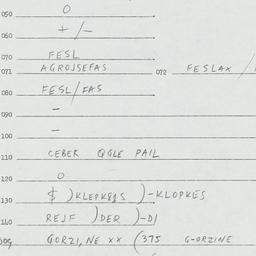 050 O
060 + / -
070 FESL
071 AGROJSEFAS 072 FESLAX /
080 FESL/FAS
090 -
100 -
110 CEBER QGLE PAIL
120 O
130 $ )KLEPK8JS )-KLOPKES
140 REJF )DER )-DJ
GORZI,NE XX (375 G-ORZINE